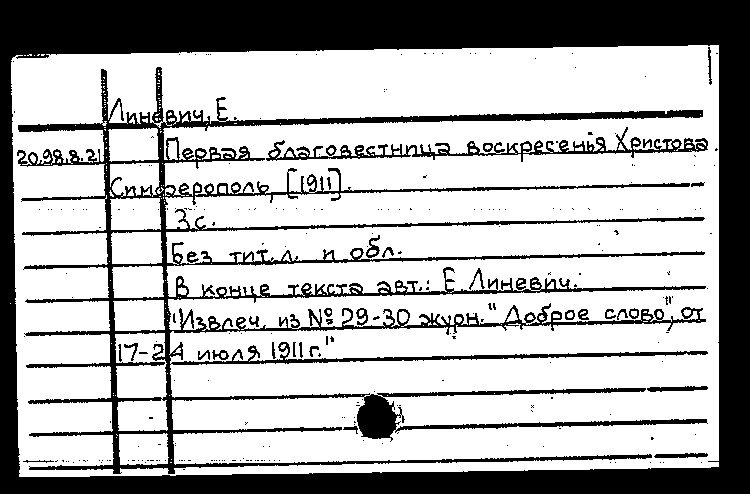 Линевич, Е.
20.98.8.21 Первая благовестница воскресенья Христова.
Симферополь, [1911].
3 с.
Без тит.л. и обл.
В конце текста авт.: Е Линевич.
"Извлеч. из № 29-30 журн." Доброе слово", от
17-24 июля 1911 г."